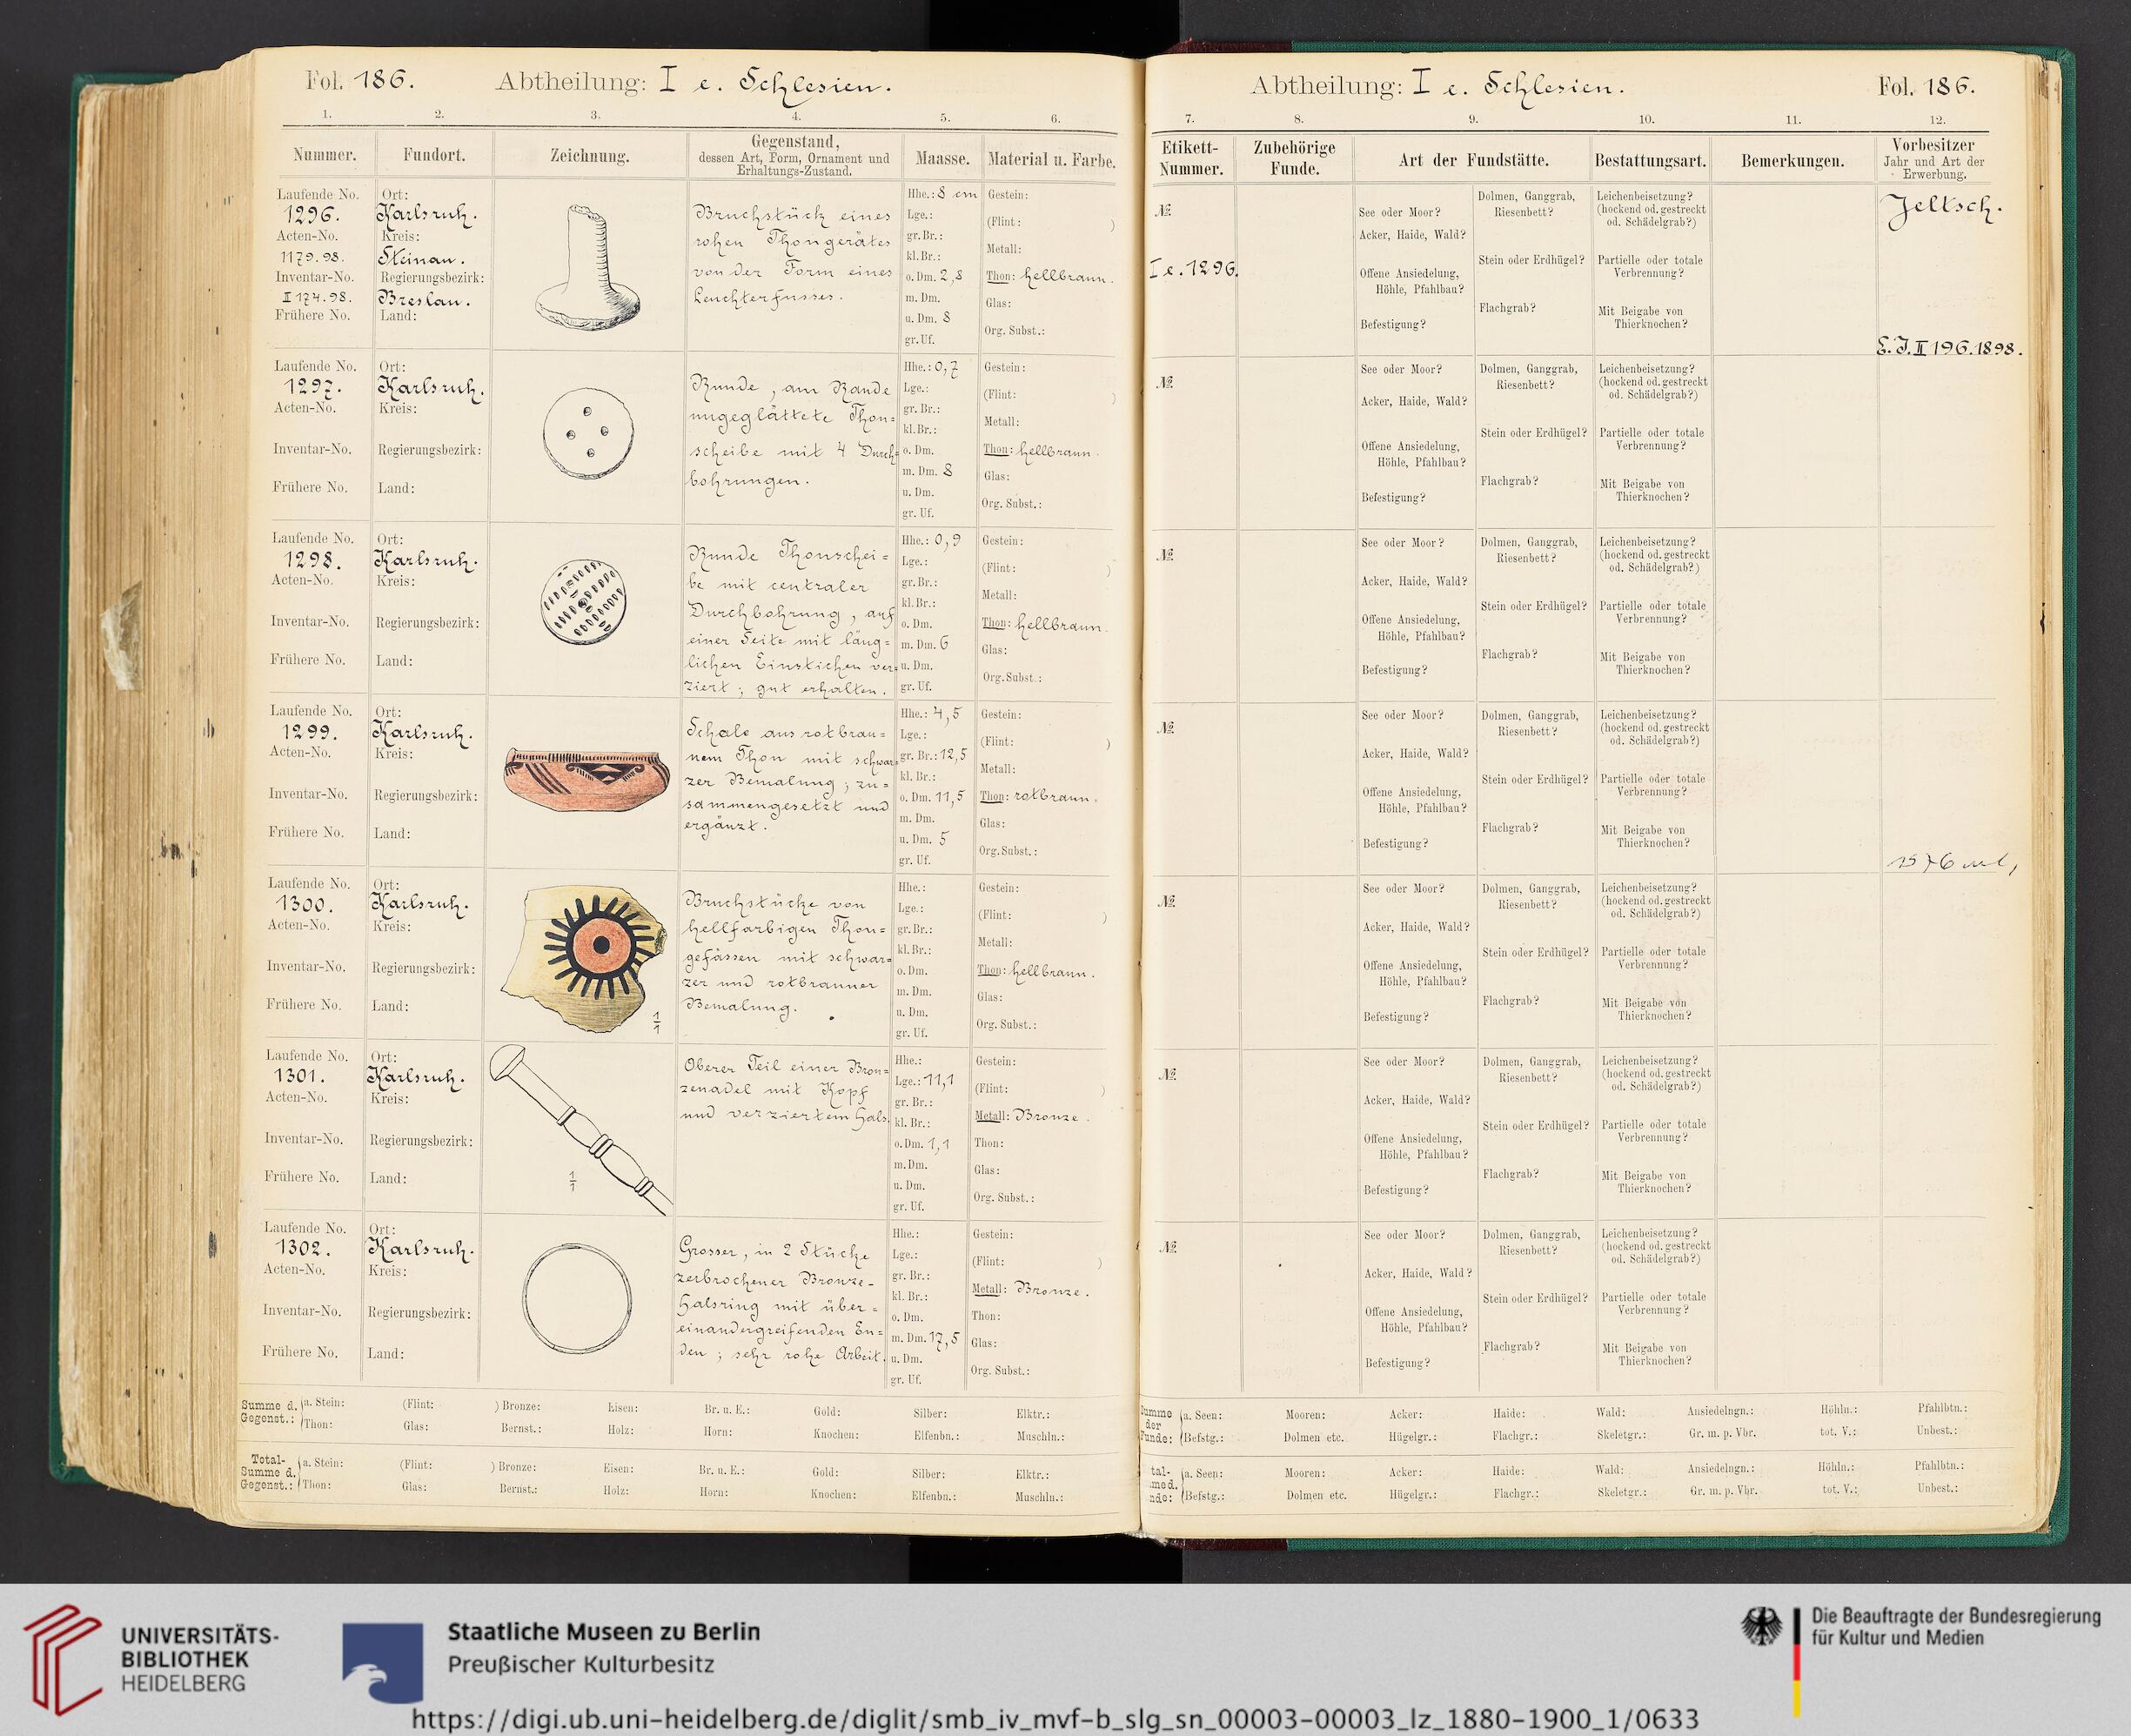 Fol. 186. Abtheilung: I e. Schlesien.
1. 2. 3. 4. 5. 6.
Nummer. Fundort. Zeichnung. Gegenstand, dessen Art, Form, Ornament und Erhaltungs-Zustand. Maasse. Material u. Farbe.
Laufende No.
1296.
Acten-No.
1179.98.
Inventar-No.
II 174.98.
Frühere No.
Ort:
Karlsruh.
Kreis:
Steinau.
Regierungsbezirk:
Breslau.
Land:
Bruchstück eines
rohen Thongerätes
von der Form eines
Leuchterfusses.
Hhe.: 8 cm
Lge.:
gr. Br.:
kl. Br.:
o. Dm. 2,8
m. Dm.
u. Dm. 8
gr. Uf.
Gestein:
(Flint: )
Metall:
Thon: hellbraun.
Glas:
Org. Subst.:
Laufende No.
1297.
Acten-No.
Inventar-No.
Frühere No.
Ort:
Karlsruh.
Kreis:
Regierungsbezirk:
Land:
Runde, am Rande
ungeglättete Thon=
scheibe mit 4 Durch
bohrungen.
Hhe.: 0,7
Lge.:
gr. Br.:
kl. Br.:
o. Dm.
m. Dm. 8
u. Dm.
gr. Uf.
Gestein:
(Flint: )
Metall:
Thon: hellbraun.
Glas:
Org. Subst.:
Laufende No.
1298.
Acten-No.
Inventar-No.
Frühere No.
Ort:
Karlsruh.
Kreis:
Regierungsbezirk:
Land:
Runde Thonschei=
be mit centraler
Durchbohrung, auf
einer Seite mit läng=
lichen Einstichen ver=
ziert; gut erhalten.
Hhe.: 0,9
Lge.:
gr. Br.:
kl. Br.:
o. Dm.
m. Dm. 6
u. Dm.
gr. Uf.
Gestein:
(Flint: )
Metall:
Thon: hellbraun.
Glas:
Org. Subst.:
Laufende No.
1299.
Acten-No.
Inventar-No.
Frühere No.
Ort:
Karlsruh.
Kreis:
Regierungsbezirk:
Land:
Schale aus rotbrau=
nem Thon mit schwar=
zer Bemalung; zu=
sammengesetzt und
ergänzt.
Hhe.: 4,5
Lge.:
gr. Br.: 12,5
kl. Br.:
o. Dm. 11,5
m. Dm.
u. Dm. 5
gr. Uf.
Gestein:
(Flint: )
Metall:
Thon: rotbraun.
Glas:
Org. Subst.:
Laufende No.
1300.
Acten-No.
Inventar-No.
Frühere No.
Ort:
Karlsruh.
Kreis:
Regierungsbezirk:
Land:
1/1
Bruchstücke von
hellfarbigen Thon=
gefässen mit schwar=
zer und rotbrauner
Bemalung.
Hhe.:
Lge.:
gr. Br.:
kl. Br.:
o. Dm.
m. Dm.
u. Dm.
gr. Uf.
Gestein:
(Flint: )
Metall:
Thon: hellbraun.
Glas:
Org. Subst.:
Laufende No.
1301.
Acten-No.
Inventar-No.
Frühere No.
Ort:
Karlsruh.
Kreis:
Regierungsbezirk:
Land:
1/1
Oberer Teil einer Bron=
zenadel mit Kopf
und verziertem Hals.
Hhe.:
Lge.: 11,1
gr. Br.:
kl. Br.:
o. Dm. 1,1
m. Dm.
u. Dm.
gr. Uf.
Gestein:
(Flint: )
Metall: Bronze.
Thon:
Glas:
Org. Subst.:
Laufende No.
1302.
Acten-No.
Inventar-No.
Frühere No.
Ort:
Karlsruh.
Kreis:
Regierungsbezirk:
Land:
Grosser, in 2 Stücke
zerbrochener Bronze-
halsring mit über=
einandergreifenden En=
den; sehr rohe Arbeit.
Hhe.:
Lge.:
gr. Br.:
kl. Br.:
o. Dm.
m. Dm. 17,5
u. Dm.
gr. Uf.
Gestein:
(Flint: )
Metall: Bronze.
Thon:
Glas:
Org. Subst.:
Summe d. Gegenst.: a. Stein: (Flint: ) Bronze: Eisen: Br. u. E.: Gold: Silber: Elktr.:
Thon: Glas: Bernst.: Holz: Horn: Knochen: Elfenbn.: Muschln.:
Total-Summe d. Gegenst.: a. Stein: (Flint: ) Bronze: Eisen: Br. u. E.: Gold: Silber: Elktr.:
Thon: Glas: Bernst.: Holz: Horn: Knochen: Elfenbn.: Muschln.:
Abtheilung: I e. Schlesien. Fol. 186.
7. 8. 9. 10. 11. 12.
Etikett-Nummer. Zubehörige Funde. Art der Fundstätte. Bestattungsart. Bemerkungen. Vorbesitzer Jahr und Art der Erwerbung.
№
I e. 1296.
See oder Moor?
Acker, Haide, Wald?
Offene Ansiedelung,
Höhle, Pfahlbau?
Befestigung?
Dolmen, Ganggrab,
Riesenbett?
Stein oder Erdhügel?
Flachgrab?
Leichenbeisetzung?
(hockend od. gestreckt
od. Schädelgrab?)
Partielle oder totale
Verbrennung?
Mit Beigabe von
Thierknochen?
Jeltsch.
E.J. II 196.1898.
№
See oder Moor?
Acker, Haide, Wald?
Offene Ansiedelung,
Höhle, Pfahlbau?
Befestigung?
Dolmen, Ganggrab,
Riesenbett?
Stein oder Erdhügel?
Flachgrab?
Leichenbeisetzung?
(hockend od. gestreckt
od. Schädelgrab?)
Partielle oder totale
Verbrennung?
Mit Beigabe von
Thierknochen?
№
See oder Moor?
Acker, Haide, Wald?
Offene Ansiedelung,
Höhle, Pfahlbau?
Befestigung?
Dolmen, Ganggrab,
Riesenbett?
Stein oder Erdhügel?
Flachgrab?
Leichenbeisetzung?
(hockend od. gestreckt
od. Schädelgrab?)
Partielle oder totale
Verbrennung?
Mit Beigabe von
Thierknochen?
№
See oder Moor?
Acker, Haide, Wald?
Offene Ansiedelung,
Höhle, Pfahlbau?
Befestigung?
Dolmen, Ganggrab,
Riesenbett?
Stein oder Erdhügel?
Flachgrab?
Leichenbeisetzung?
(hockend od. gestreckt
od. Schädelgrab?)
Partielle oder totale
Verbrennung?
Mit Beigabe von
Thierknochen?
№
See oder Moor?
Acker, Haide, Wald?
Offene Ansiedelung,
Höhle, Pfahlbau?
Befestigung?
Dolmen, Ganggrab,
Riesenbett?
Stein oder Erdhügel?
Flachgrab?
Leichenbeisetzung?
(hockend od. gestreckt
od. Schädelgrab?)
Partielle oder totale
Verbrennung?
Mit Beigabe von
Thierknochen?
№
See oder Moor?
Acker, Haide, Wald?
Offene Ansiedelung,
Höhle, Pfahlbau?
Befestigung?
Dolmen, Ganggrab,
Riesenbett?
Stein oder Erdhügel?
Flachgrab?
Leichenbeisetzung?
(hockend od. gestreckt
od. Schädelgrab?)
Partielle oder totale
Verbrennung?
Mit Beigabe von
Thierknochen?
№
See oder Moor?
Acker, Haide, Wald?
Offene Ansiedelung,
Höhle, Pfahlbau?
Befestigung?
Dolmen, Ganggrab,
Riesenbett?
Stein oder Erdhügel?
Flachgrab?
Leichenbeisetzung?
(hockend od. gestreckt
od. Schädelgrab?)
Partielle oder totale
Verbrennung?
Mit Beigabe von
Thierknochen?
Summe der Funde: a. Seen: Mooren: Acker: Haide: Wald: Ansiedelngn.: Höhln.: Pfahlbtn.:
Befstg.: Dolmen etc. Hügelgr.: Flachgr.: Skeletgr.: Gr. m. p. Vbr. tot. V.: Unbest.:
a. Seen: Mooren: Acker: Haide: Wald: Ansiedelngn.: Höhln.: Pfahlbtn.:
Befstg.: Dolmen etc. Hügelgr.: Flachgr.: Skeletgr.: Gr. m. p. Vbr. tot. V.: Unbest.:
UNIVERSITÄTS-
BIBLIOTHEK
HEIDELBERG
Staatliche Museen zu Berlin
Preußischer Kulturbesitz
Die Beauftragte der Bundesregierung
für Kultur und Medien
https://digi.ub.uni-heidelberg.de/diglit/smb_iv_mvf-b_slg_sn_00003-00003_lz_1880-1900_1/0633